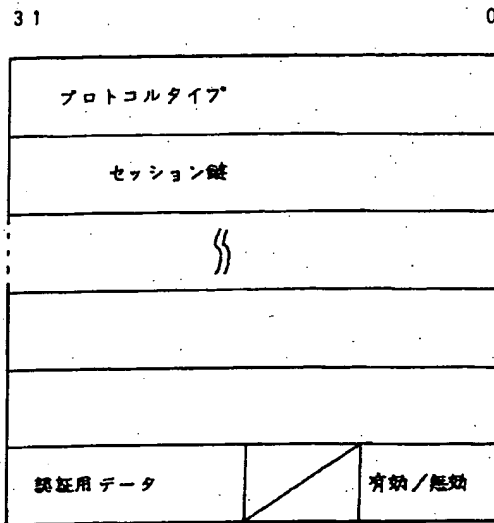 31 0
プロトコルタイプ
セッション鍵
認証用データ
有効/無効